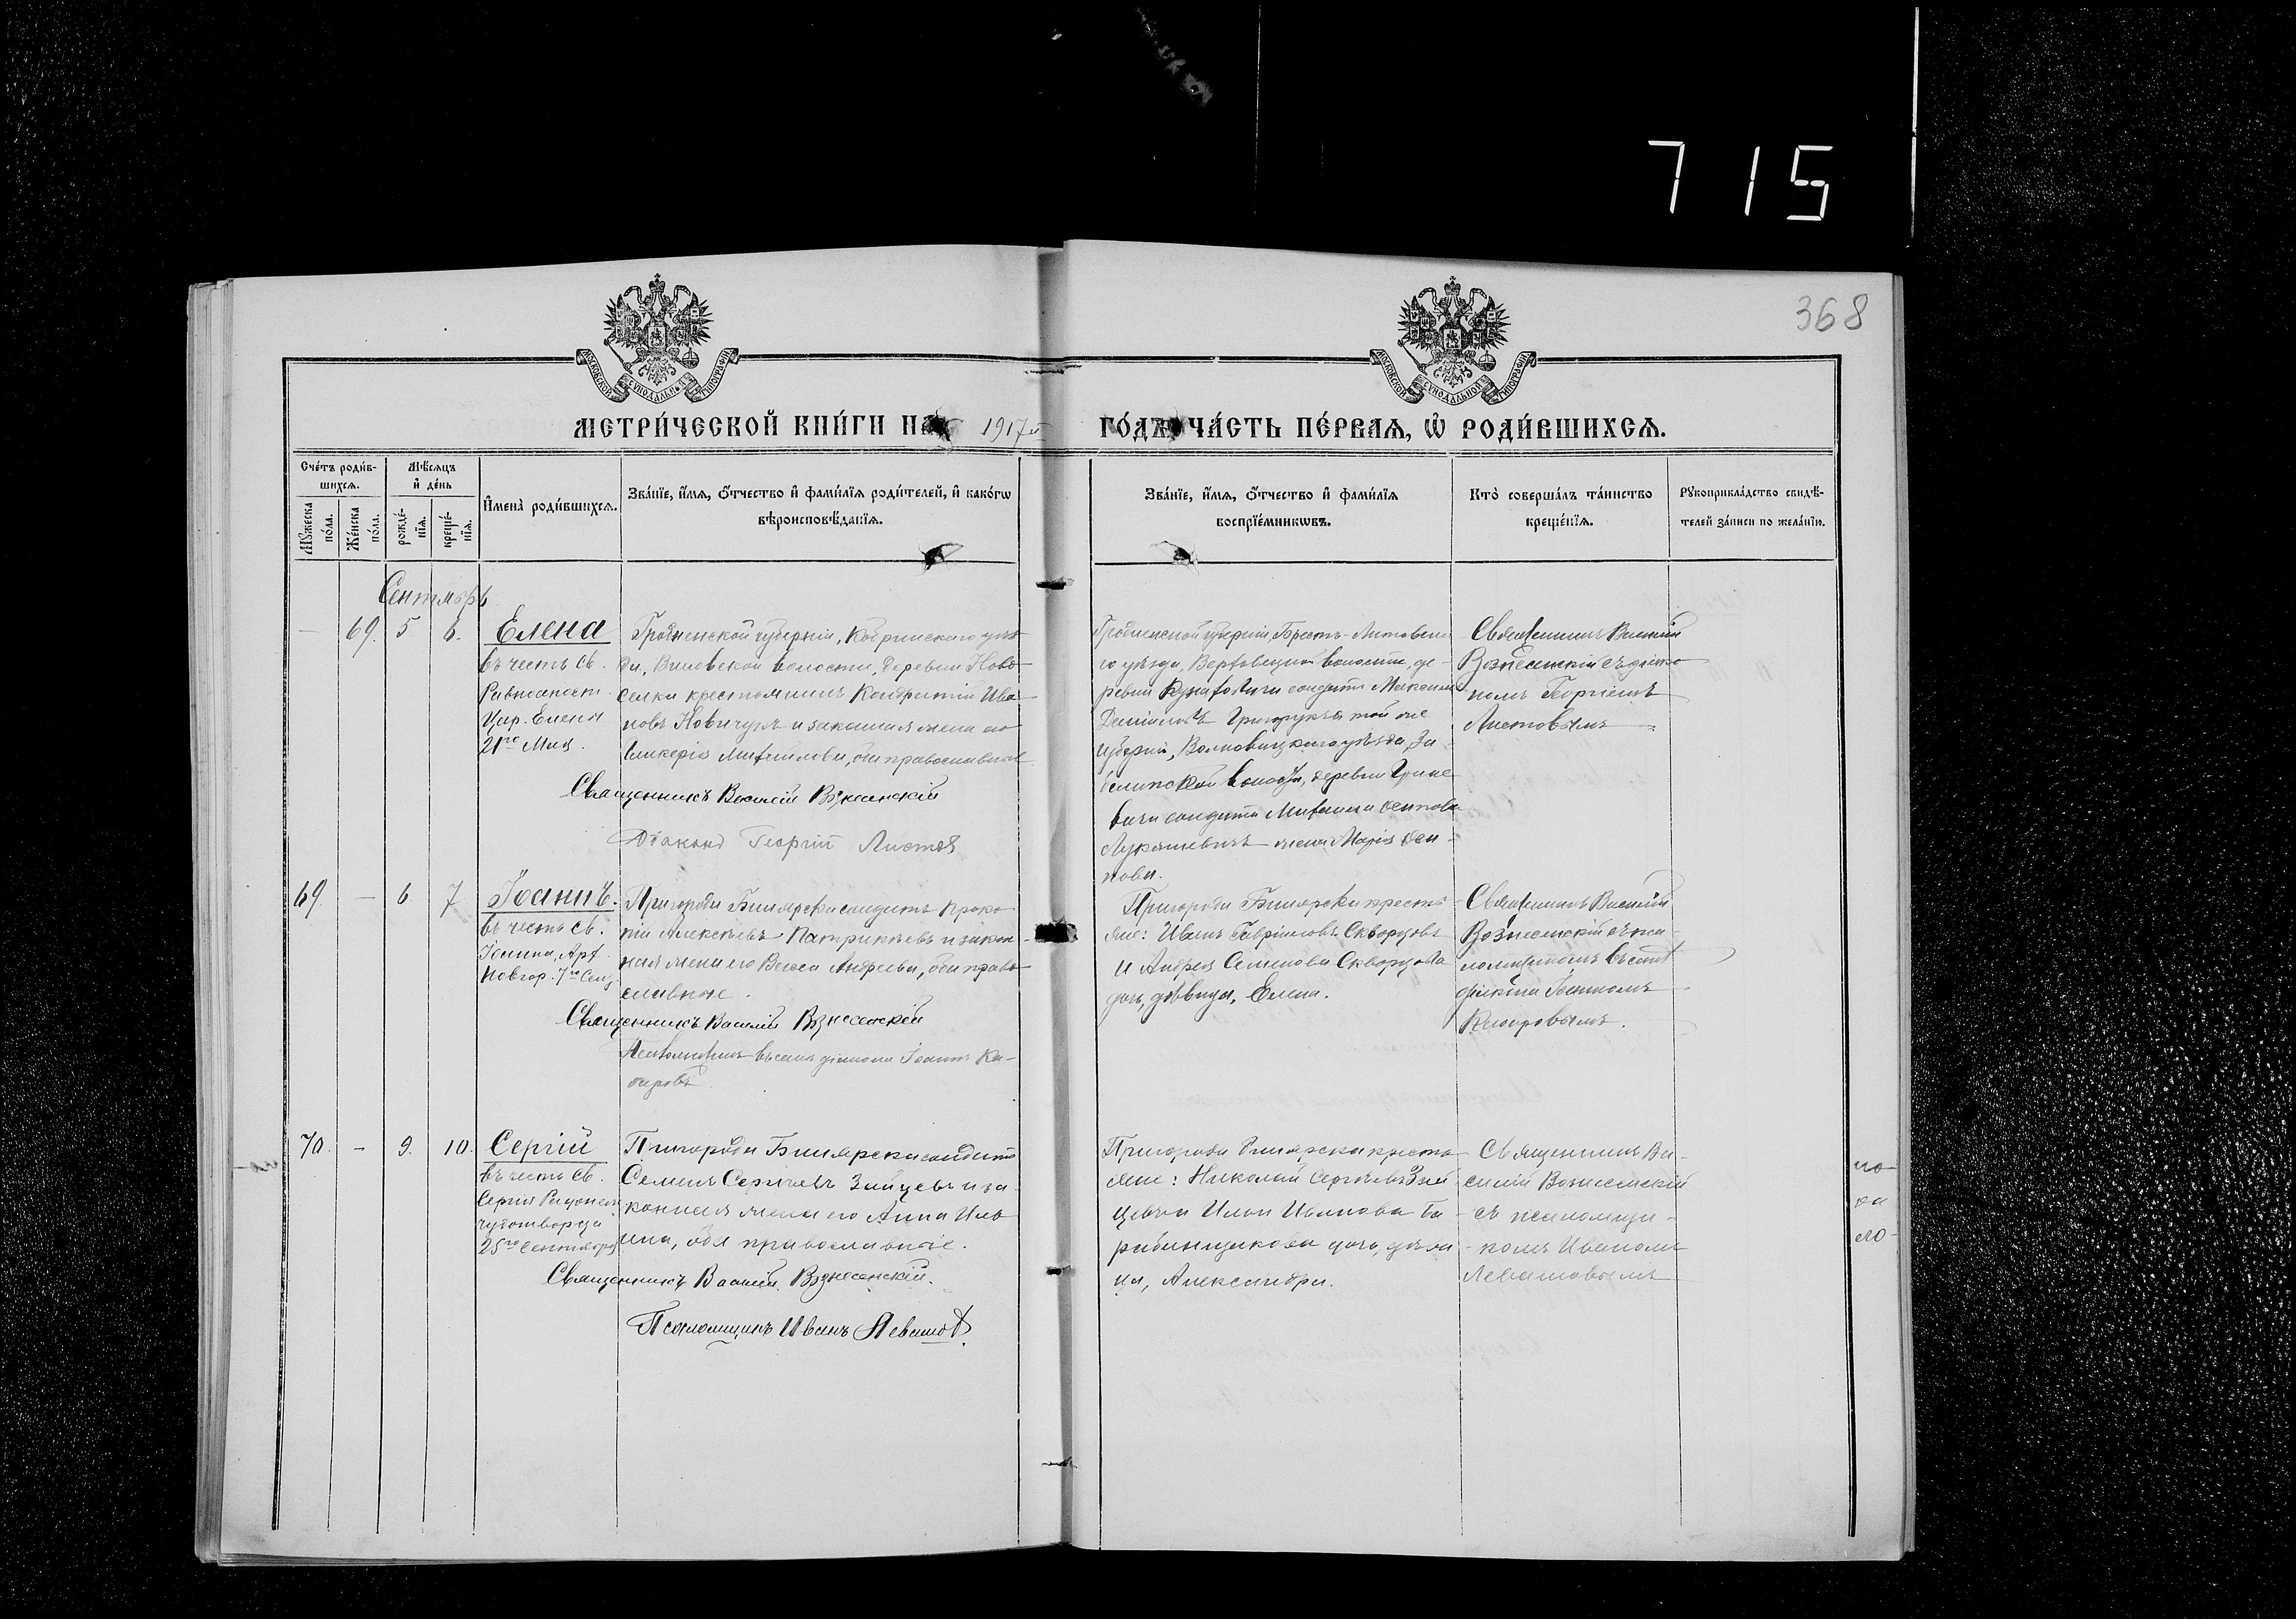 715
368
МОСКОВСКОЙ СѴНОДАЛЬНОЙ ТИПОГРАФІИ
МОСКОВСКОЙ СѴНОДАЛЬНОЙ ТИПОГРАФІИ
МЕТРИ́ЧЕСКОЙ КНИ́ГИ НА 1917 ГО́ДЪ ЧА́СТЬ ПЕ́РВАЯ, Ѡ҆ РОДИ́ВШИХСЯ.
Сче́тъ роди́в-
шихся.
Мꙋ́жеска по́ла.
Же́нска по́ла.
Мѣ́сяцъ
и҆ де́нь
рожде́-
нїя.
креще́-
нїя.
И҆мена̀ роди́вшихся.
Зва́нїе, и҆́мя, ѻ҆́тчество и҆ фами́лїя роди́телей, и҆ како́гѡ
вѣроисповѣ́данїя.
Зва́нїе, и҆́мя, ѻ҆́тчество и҆ фами́лїя
воспрїе́мникѡвъ.
Кто̀ соверша́лъ та́инство
креще́нїя.
Рꙋкоприкла́дство свидѣ́-
телей за́писи по жела́нїю.
Сентябрь
— 69. 5 6.
Елена
въ честь св.
Равноапост.
Цар. Елены
21го Мая.
Гродненской губерніи, Кобринскаго уѣз
да, волости, деревни Ново
селки крестьянинъ Кондратій Ива
новъ и законная жена его
Гликерія оба православные.
Священникъ Василій Вознесенскій
Діаконъ Георгій Листовъ
Гродненской губерніи Брестъ-Литовска
го уѣзда, волости, де-
ревни солдатъ Максимъ
Григорукъ и той же
губерніи, Волковыскаго уѣзда, За
бѣлинской волости, деревни Грине
вичи солдата Михаила Осипова
Лукашевичъ жена Марія Оси-
пова.
Священникъ Василій
Вознесенскій съ діако
номъ Георгіемъ
Листовымъ
69. — 6 7
Іоаннъ.
въ честь св.
Іоанна, Арх.
Новгор. 7го Сен.
Пригорода Билярска солдатъ Проко
пій Алексѣевъ Патрикѣевъ и закон-
ная жена его Васса Андреева, оба право
славные.
Священникъ Василій Вознесенскій
Псаломщикъ въ санѣ діакона Іоаннъ
Пригорода Билярска крестья
яне: Иванъ Гавріиловъ Скворцовъ
и Андрея Семенова Скворцова
дочь, дѣвица, Елена.
Священникъ Василій
Вознесенскій съ пса-
ломщикомъ въ санѣ
діакона Іоанномъ
70. — 9. 10.
Сергій
въ честь св.
Сергія Радонеж.
чудотворца
25го Сентября
Пригорода Билярска солдатъ
Семенъ Сергѣевъ Зайцевъ и за
конная жена его Анна Иль
ина, оба православные.
Священникъ Василій Вознесенскій.
Псаломщикъ Иванъ Левашовъ.
Пригорода Билярска кресть
яне: Николай Сергѣевъ Зай
цевъ и Ильи Иванова Ба
рабанщикова дочь, дѣви
ца, Александра.
Священникъ Ва-
силій Вознесенскій
съ псаломщи-
комъ Иваномъ
Левашовымъ